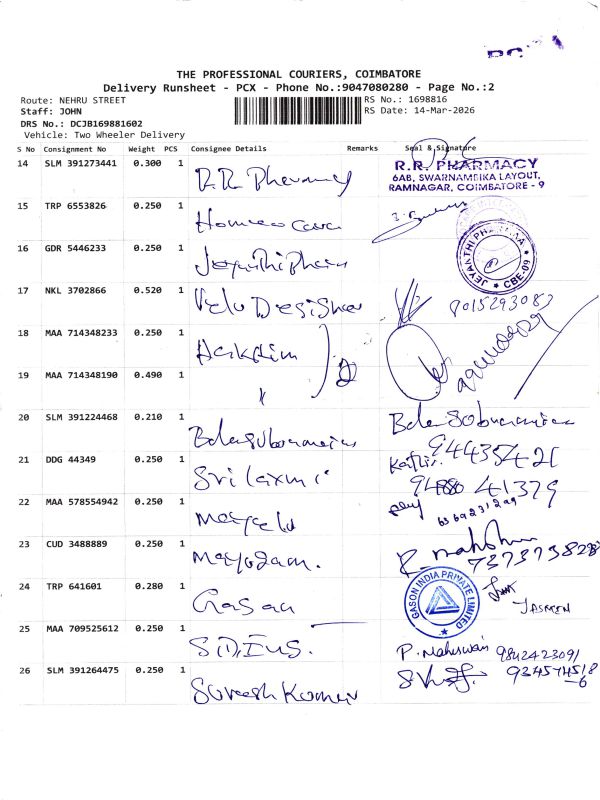 THE PROFESSIONAL COURIERS, COIMBATORE
Delivery Runsheet - PCX - Phone No.:9047080280 - Page No.:2
Route: NEHRU STREET RS No.: 1698816
Staff: JOHN RS Date: 14-Mar-2026
DRS No.: DCJB169881602
Vehicle: Two Wheeler Delivery
S No Consignment No Weight PCS Consignee Details Remarks Seal & Signature
14 SLM 391273441 0.300 1 R.R. Pharmacy R.R. PHARMACY
6AB, SWARNAMBIKA LAYOUT,
RAMNAGAR, COIMBATORE - 9
15 TRP 6553826 0.250 1 Homeeo Care
16 GDR 5446233 0.250 1 JEYANTHI PHARMAA
CBE-09
17 NKL 3702866 0.520 1 Velu 8015293083
18 MAA 714348233 0.250 1
19 MAA 714348190 0.490 1
20 SLM 391224468 0.210 1 Balasubramanian
9443542
21 DDG 44349 0.250 1 Sri laxmi
41379
22 MAA 578554942 0.250 1
6369231299
23 CUD 3488889 0.250 1
24 TRP 641601 0.280 1 Gasan GASON INDIA PRIVATE LIMITED JASMEN
25 MAA 709525612 0.250 1 P. Maheswari 9842423091
26 SLM 391264475 0.250 1 Suresh Kumar